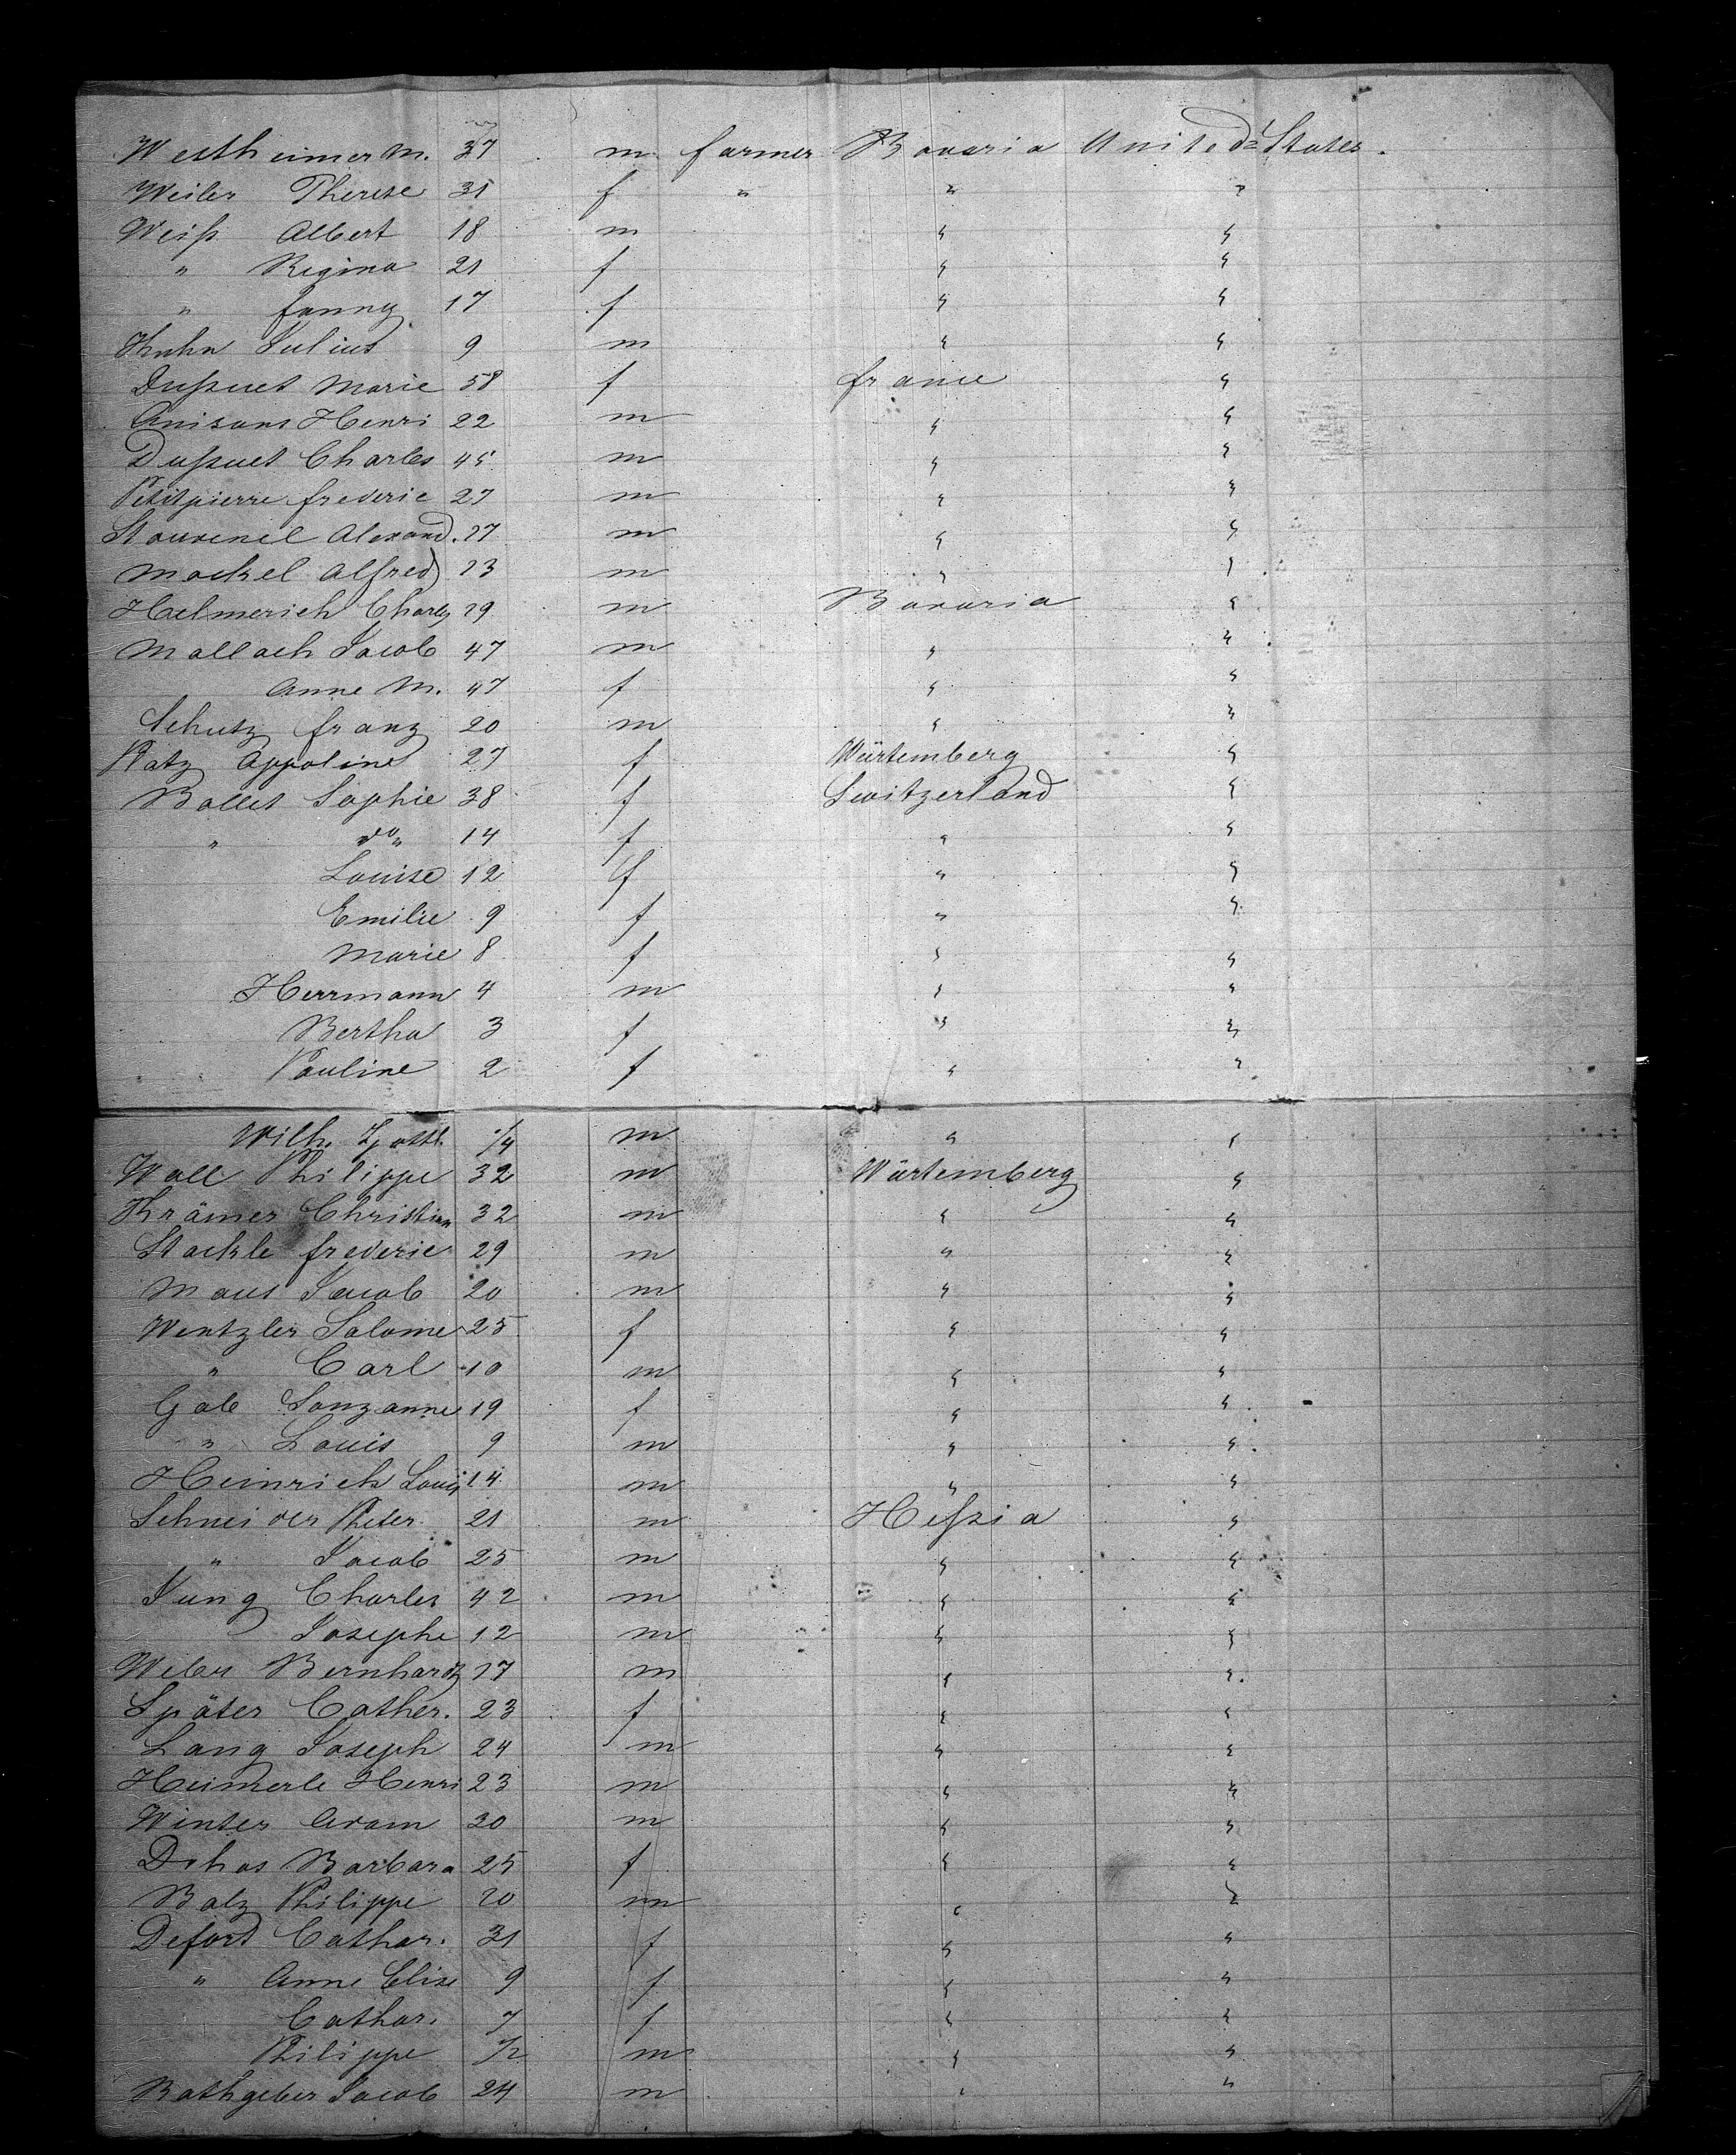 Westheimer M. 37 m farmer Bavaria United States.
Weiler Therese 31 f " " "
Weiß Albert 18 m " "
" Regina 21 f " "
" fanny 17 f " "
Kuhn Julius 9 m " "
Dußuet Marie 58 f france "
Anisans Henri 22 m " "
Dußuet Charles 45 m " "
Petitpierre frederic 27 m " "
Stouvenel Alexand. 27 m " "
Mockel Alfred 23 m " "
Helmerich Charles 29 m Bavaria "
Mallach Jacob 47 m " "
Anne M. 47 f " "
Schutz franz 20 m " "
Platz Appoline 27 f Würtemberg "
Bollet Sophie 38 f Switzerland "
" do " 14 f " "
Louise 12 f " "
Emilie 9 f " "
Marie 8 f " "
Herrmann 4 m " "
Bertha 3 f " "
Pauline 2 f " "
Wilh. 1/4 m " "
Wall Philippe 32 m Würtemberg "
Krämer Christian 32 m " "
Stackle frederic 29 m " "
Maus Jacob 20 m " "
Wentzler Salome 25 f " "
" Carl 10 m " "
Gab Souzanne 19 f " "
" Louis 9 m " "
Heinrich Louis 14 m " "
Schneider Peter 21 m Heßia "
" Jacob 25 m " "
Jung Charles 42 m " "
Josephe 12 m " "
Weber Bernhard 17 m " "
Später Cather. 23 f " "
Lang Joseph 24 m " "
Heimerle Henri 23 m " "
Winter Adam 20 m " "
Dehos Barbara 25 f " "
Balz Philippe 20 m " "
Defort Cathar. 31 f " "
" Anne Elise 9 f " "
Cathar. 7 f " "
Philippe 1/2 m " "
Rathgeber Jacob 24 m " "